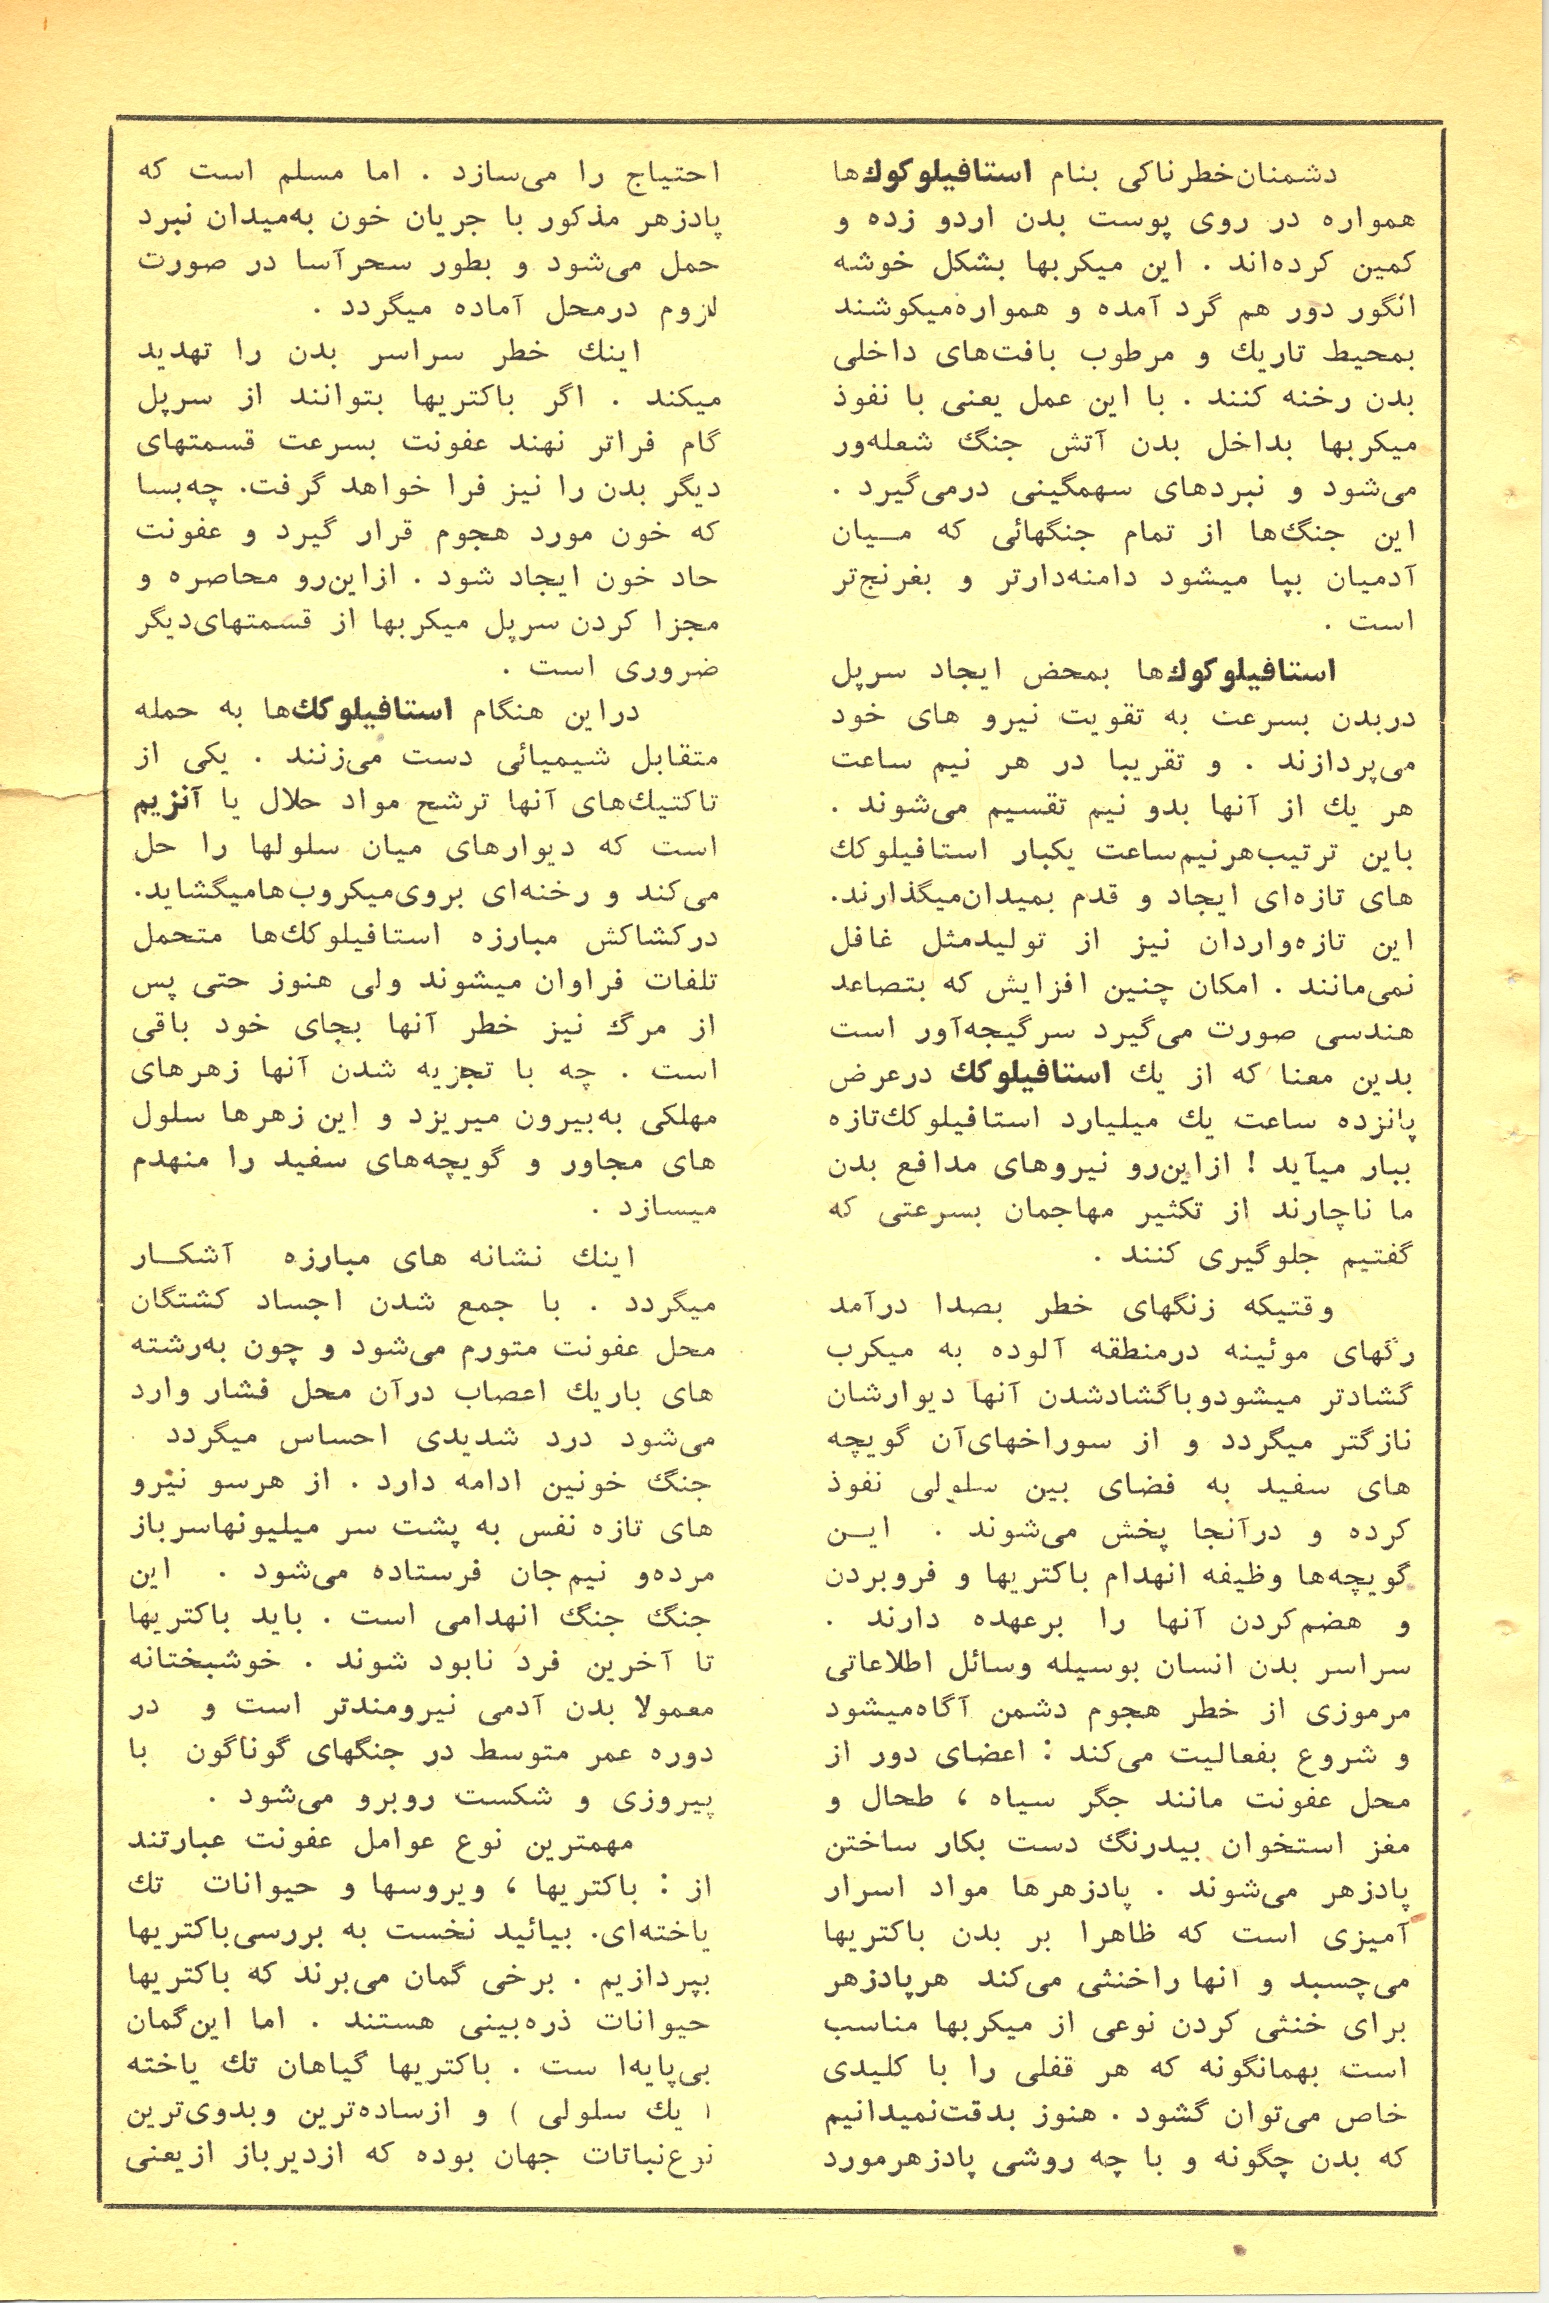 دشمنان خطرناکی بنام استافیلوکوك‌ها
همواره در روی پوست بدن اردو زده و
کمین کرده‌اند . این میکربها بشکل خوشه
انگور دور هم گرد آمده و همواره میکوشند
بمحیط تاریك و مرطوب بافت‌های داخلی
بدن رخنه کنند . با این عمل یعنی با نفوذ
میکربها بداخل بدن آتش جنگ شعله‌ور
می‌شود و نبردهای سهمگینی درمی‌گیرد .
این جنگ‌ها از تمام جنگهائی که میان
آدمیان بپا میشود دامنه‌دارتر و بغرنج‌تر
است .
استافیلوکوك‌ها بمحض ایجاد سرپل
دربدن بسرعت به تقویت نیرو های خود
می‌پردازند . و تقریبا در هر نیم ساعت
هر یك از آنها بدو نیم تقسیم می‌شوند .
باین ترتیب هرنیم‌ساعت یکبار استافیلوکك
های تازه‌ای ایجاد و قدم بمیدان میگذارند.
این تازه‌واردان نیز از تولیدمثل غافل
نمی‌مانند . امکان چنین افزایش که بتصاعد
هندسی صورت می‌گیرد سرگیجه‌آور است
بدین معنا که از یك استافیلوکك درعرض
پانزده ساعت یك میلیارد استافیلوکك تازه
ببار میآید ! ازاین‌رو نیروهای مدافع بدن
ما ناچارند از تکثیر مهاجمان بسرعتی که
گفتیم جلوگیری کنند .
وقتیکه زنگهای خطر بصدا درآمد
رگهای موئینه درمنطقه آلوده به میکرب
گشادتر میشودوباگشادشدن آنها دیوارشان
نازگتر میگردد و از سوراخهای‌آن گویچه
های سفید به فضای بین سلولی نفوذ
کرده و درآنجا پخش می‌شوند . این
گویچه‌ها وظیفه انهدام باکتریها و فروبردن
و هضم‌کردن آنها را برعهده دارند .
سراسر بدن انسان بوسیله وسائل اطلاعاتی
مرموزی از خطر هجوم دشمن آگاه‌میشود
و شروع بفعالیت می‌کند : اعضای دور از
محل عفونت مانند جگر سیاه ، طحال و
مغز استخوان بیدرنگ دست بکار ساختن
پادزهر می‌شوند . پادزهرها مواد اسرار
آمیزی است که ظاهرا بر بدن باکتریها
می‌چسبد و انها راخنثی می‌کند هرپادزهر
برای خنثی کردن نوعی از میکربها مناسب
است بهمانگونه که هر قفلی را با کلیدی
خاص می‌توان گشود . هنوز بدقت نمیدانیم
که بدن چگونه و با چه روشی پادزهرمورد
احتیاج را می‌سازد . اما مسلم است که
پادزهر مذکور با جریان خون به‌میدان نبرد
حمل می‌شود و بطور سحرآسا در صورت
لزوم درمحل آماده میگردد .
اینك خطر سراسر بدن را تهدید
میکند . اگر باکتریها بتوانند از سرپل
گام فراتر نهند عفونت بسرعت قسمتهای
دیگر بدن را نیز فرا خواهد گرفت. چه‌بسا
که خون مورد هجوم قرار گیرد و عفونت
حاد خون ایجاد شود . ازاین‌رو محاصره و
مجزا کردن سرپل میکربها از قسمتهای‌دیگر
ضروری است .
دراین هنگام استافیلوکك‌ها به حمله
متقابل شیمیائی دست می‌زنند . یکی از
تاکتیك‌های آنها ترشح مواد حلال یا آنزیم
است که دیوارهای میان سلولها را حل
می‌کند و رخنه‌ای بروی‌میکروب‌هامیگشاید.
درکشاکش مبارزه استافیلوکك‌ها متحمل
تلفات فراوان میشوند ولی هنوز حتی پس
از مرگ نیز خطر آنها بجای خود باقی
است . چه با تجزیه شدن آنها زهرهای
مهلکی به‌بیرون میریزد و این زهرها سلول
های مجاور و گویچه‌های سفید را منهدم
میسازد .
اینك نشانه های مبارزه آشکار
میگردد . با جمع شدن اجساد کشتگان
محل عفونت متورم می‌شود و چون به‌رشته
های باریك اعصاب درآن محل فشار وارد
می‌شود درد شدیدی احساس میگردد
جنگ خونین ادامه دارد . از هرسو نیرو
های تازه نفس به پشت سر میلیونهاسرباز
مرده‌و نیم‌جان فرستاده می‌شود . این
جنگ جنگ انهدامی است . باید باکتریها
تا آخرین فرد نابود شوند . خوشبختانه
معمولا بدن آدمی نیرومندتر است و در
دوره عمر متوسط در جنگهای گوناگون با
پیروزی و شکست روبرو می‌شود .
مهمترین نوع عوامل عفونت عبارتند
از : باکتریها ، ویروسها و حیوانات تك
یاخته‌ای. بیائید نخست به بررسی‌باکتریها
بپردازیم . برخی گمان می‌برند که باکتریها
حیوانات ذره‌بینی هستند . اما این‌گمان
بی‌پایه‌ا ست . باکتریها گیاهان تك یاخته
( یك سلولی ) و ازساده‌ترین وبدوی‌ترین
نوع‌نباتات جهان بوده که ازدیرباز ازیعنی